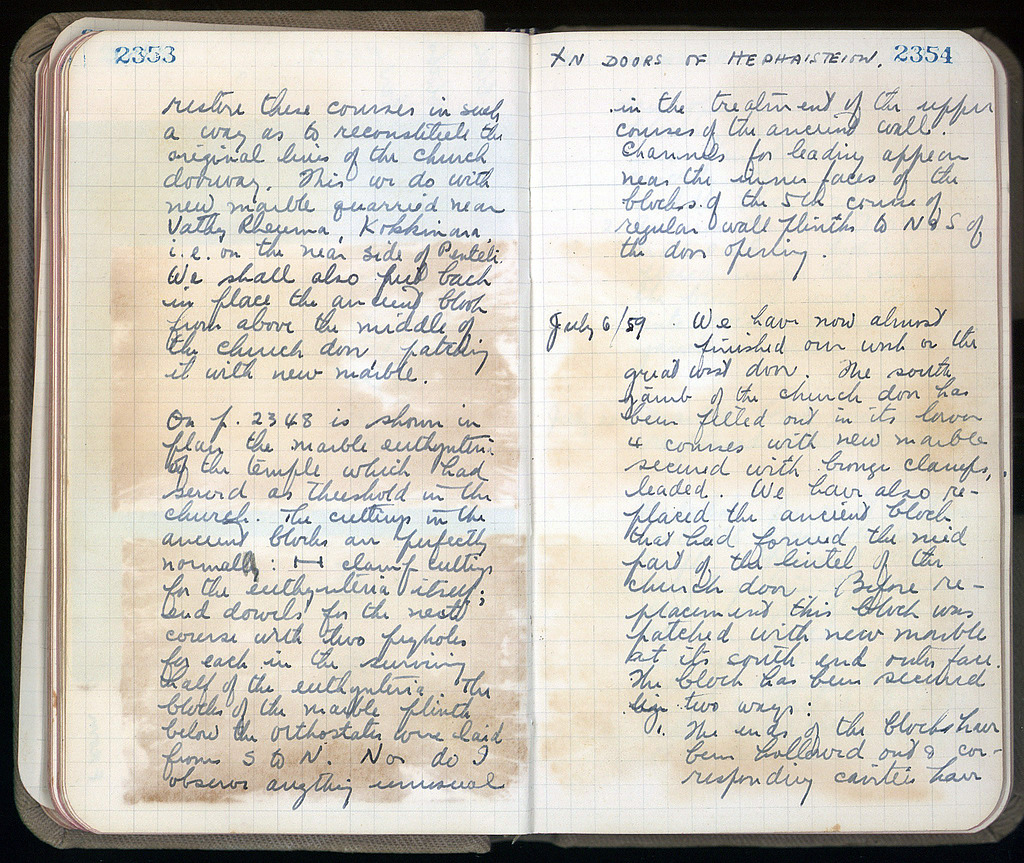 2353
restore these courses in such
a way as to reconstitute the
original lines of the church
doorway. This we do with
new marble quarried near
Vathy Rheuma, Kokkinara,
i.e. on the near side of Penteli.
We shall also put back
in place the ancient block
from above the middle of
the church door, patching
it with new marble.
On p. 2348 is shown in
plan the marble euthynteria
of the temple which had
served as threshold in the
church. The cuttings in the
ancient blocks are perfectly
normal: clamp cuttings
for the euthynteria itself;
end dowels for the next
course with two pryholes
for each in the surviving
half of the euthynteria. The
blocks of the marble plinth
below the orthostates were laid
from S to N. Nor do I
observe anything unusual
XN DOORS OF HEPHAISTEION. 2354
in the treatment of the upper
courses of the ancient wall.
Channels for leading appear
near the inner faces of the
blocks of the 5th course of
regular wall plinths to N & S of
the door opening.
July 6/59. We have now almost
finished our work on the
great west door. The south
jamb of the church door has
been filled out in its lower
4 courses with new marble
secured with bronze clamps,
leaded. We have also re-
placed the ancient block
that had formed the mid
part of the lintel of the
church door. Before re-
placement this block was
patched with new marble
at its south end outer face.
The block has been secured
in two ways:
1. The ends of the blocks have
been hollowed out & cor-
responding cavities have